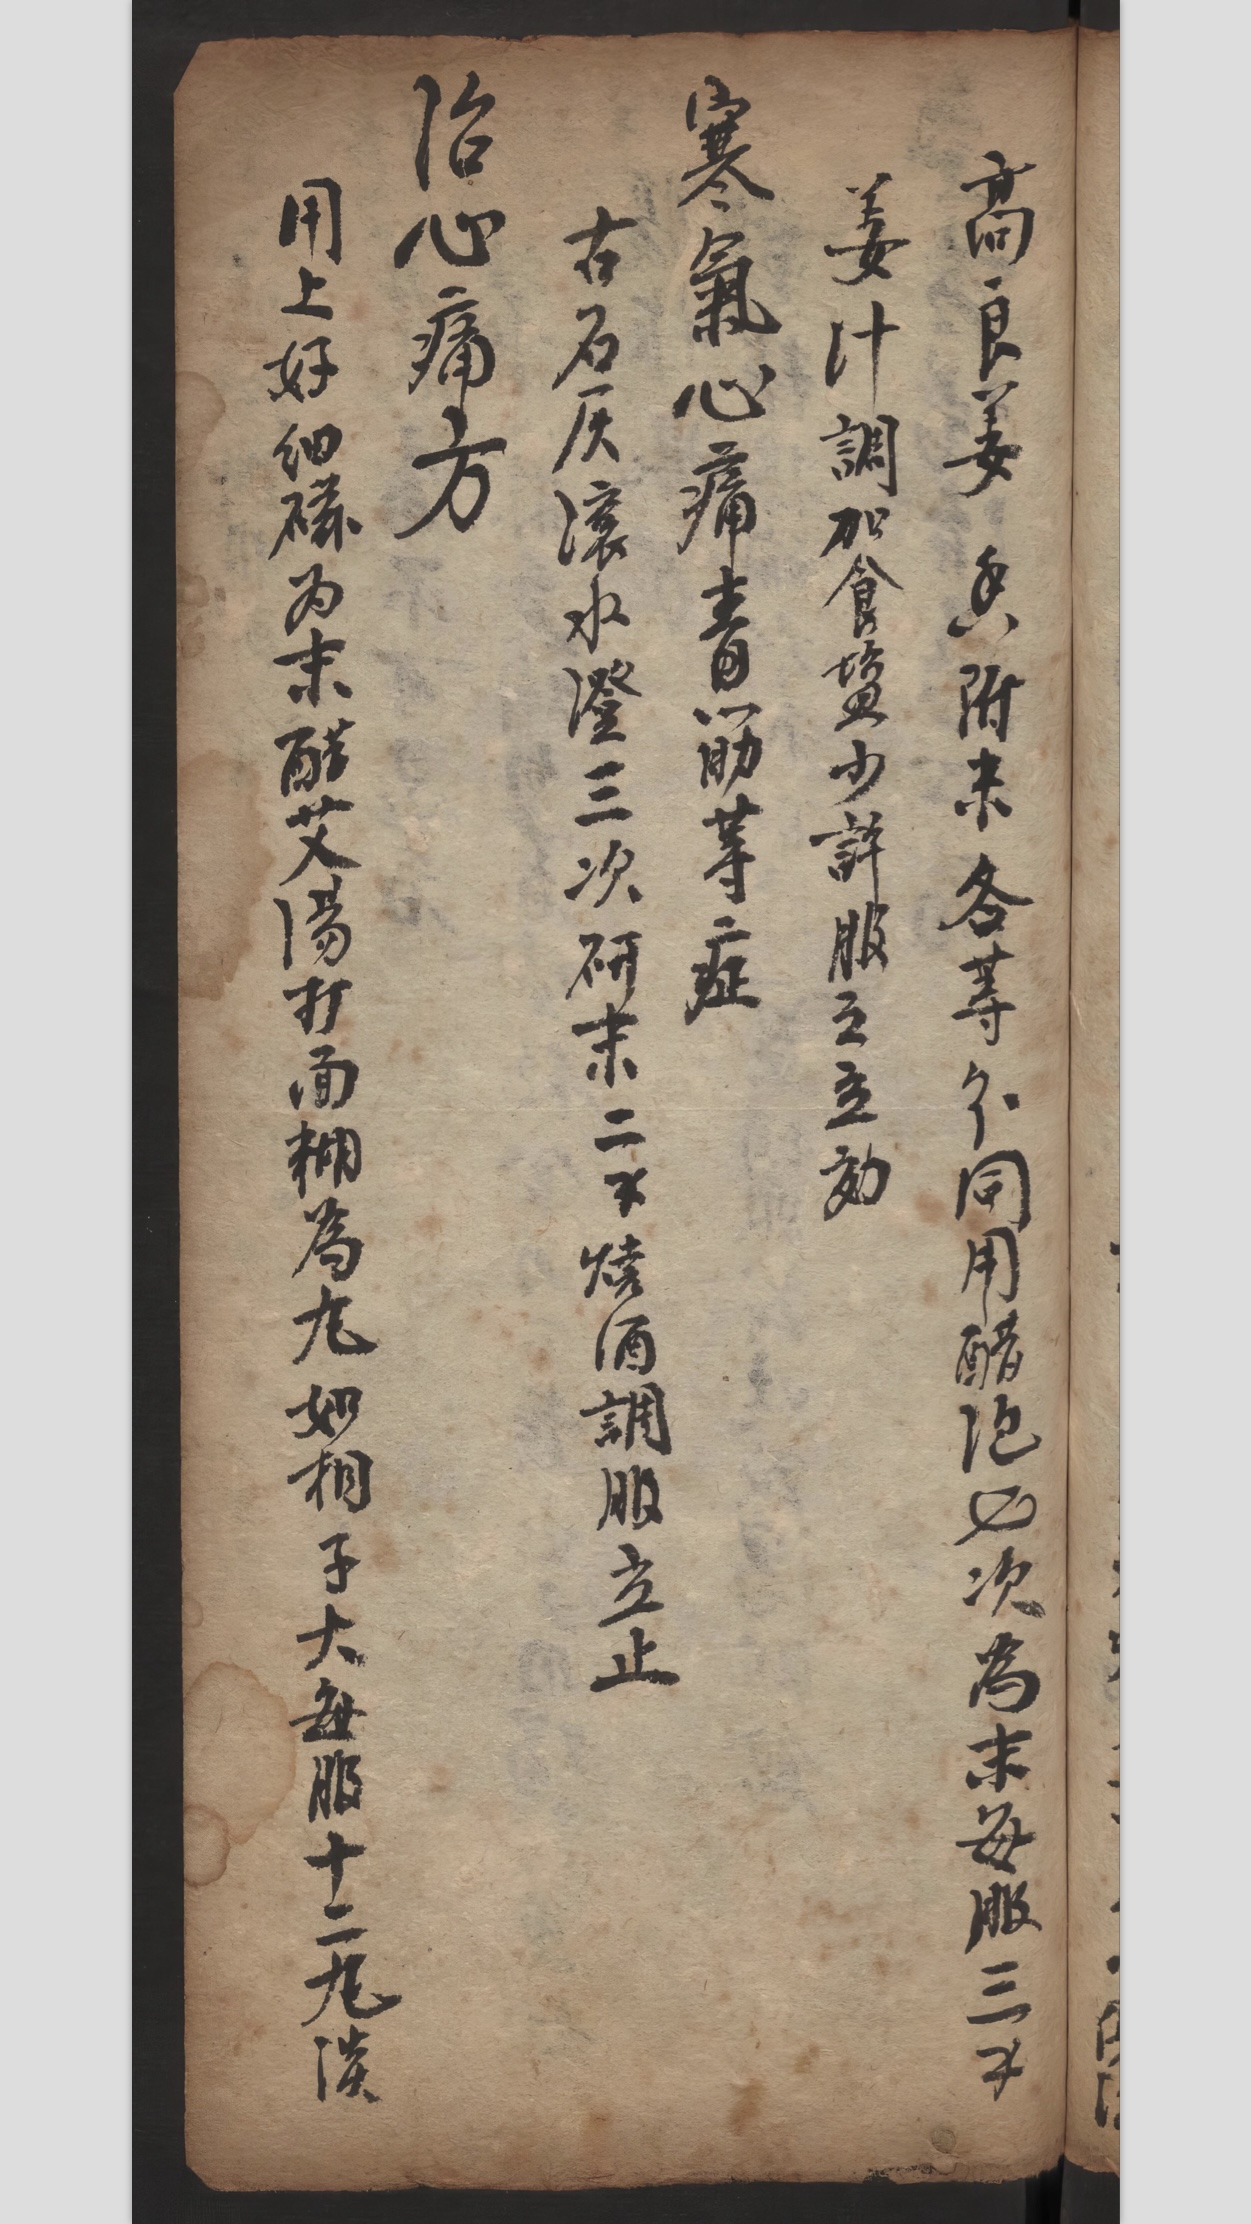 高良姜香附末各等分同用醋泡七次為末每服三不
姜汁調加食塩少許服立立効
寒氣心痛青筋等症
古石灰滚水澄三次研末二不焼酒調服立止
治心痛方
用上好细磉为末醋艾湯打面糊為丸如桐子大每服十二丸淡